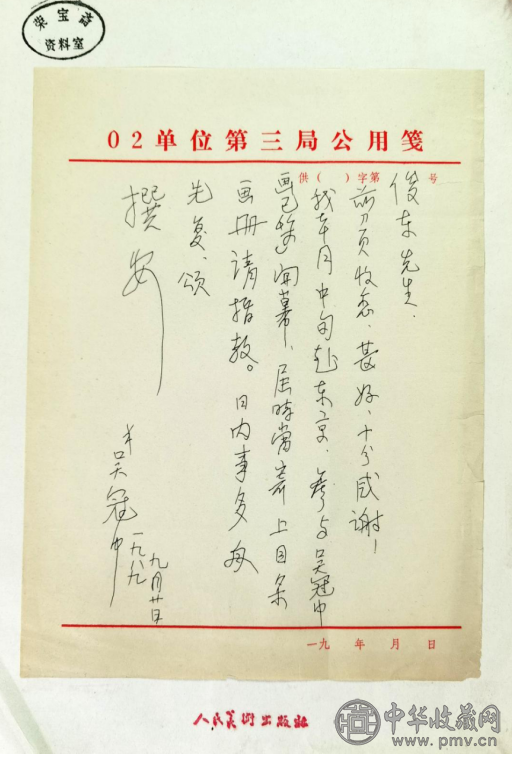 荣宝斋
资料室
02单位第三局公用笺
供( )字第 号
俊东先生.
前刀页收悉、甚好、十分感谢!
我本月中旬赴东京.参与吴冠中
画已 闻幕、届時當寄上目录
画册请指教。日内事多
先复、颂
撰安
吴冠中
一九八九
九月廿日
一九 年 月 日
人民美術出版社
中华收藏网
www.pmv.cn